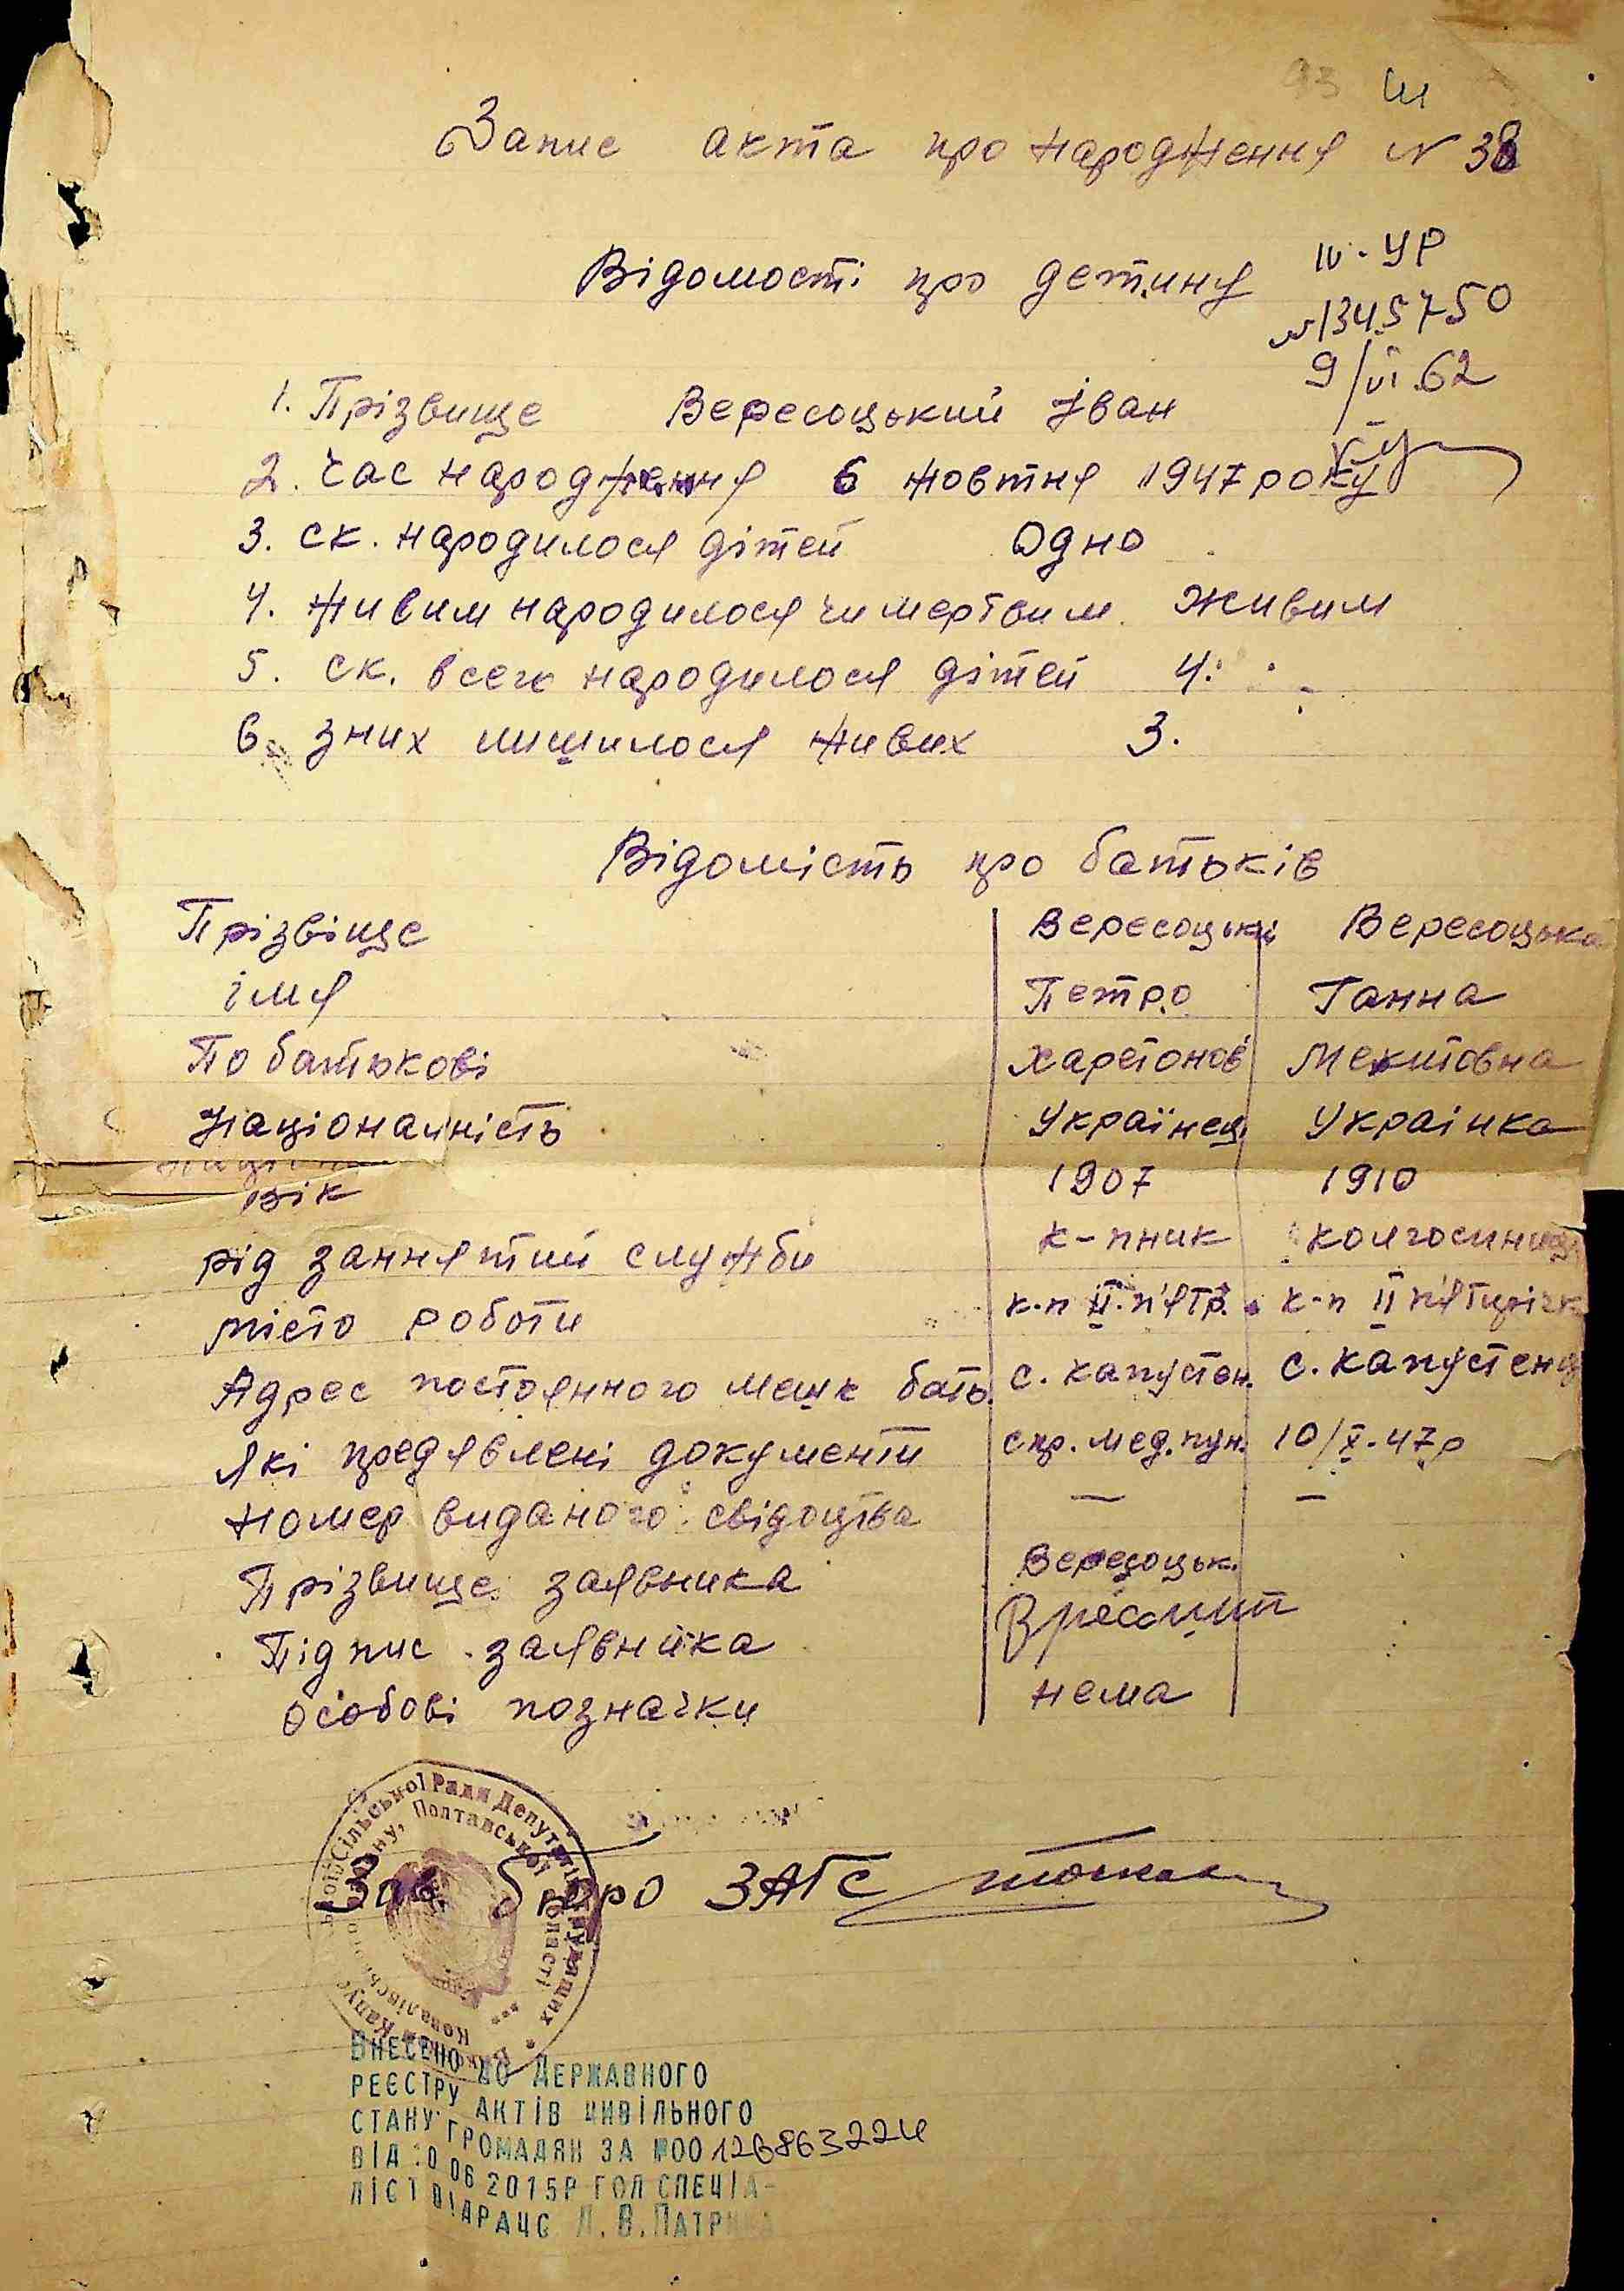 93
Запис акта про народження N 38
Відомості про детину
IV-УР
N 1345750
9/VI.62
1. Прізвище Вересоцький Іван
2. Час народження 6 жовтня 1947 року
3. ск. народилося дітей Одно
4. живим народилося чи мертвим живим
5. ск. всего народилося дітей 4.
6. зних лишилося живих 3.
Відомість про батьків
Прізвіще Вересоцьки Вересоцька
імя Петро Ганна
По батькові Харетонов Мекитовна
Національність Українец Українка
вік 1907 1910
рід заннятий служби к-пник колгосниця
місто роботи к-п II п'ятр. к-п II п'ятирічк
Адрес постоянного мешк бать. с. Капустен. с. Капустенц
Які предявлені документи спр. мед. пун. 10/X-47р
Номер виданого свідоцтва — —
Прізвище заявника Вересоцьк.
Підпис заявника
особові позначки нема
Сільської Ради Депутатів Трудящих
Полтавської області
Зав бюро ЗАГС
ВНЕСЕНО ДО ДЕРЖАВНОГО
РЕЄСТРУ АКТІВ ЦИВІЛЬНОГО
СТАНУ ГРОМАДЯН ЗА №00126863224
ВІД 10 06 2015Р ГОЛ СПЕЦІА-
ЛІСТ ВІДРАЦС Л.В.ПАТР